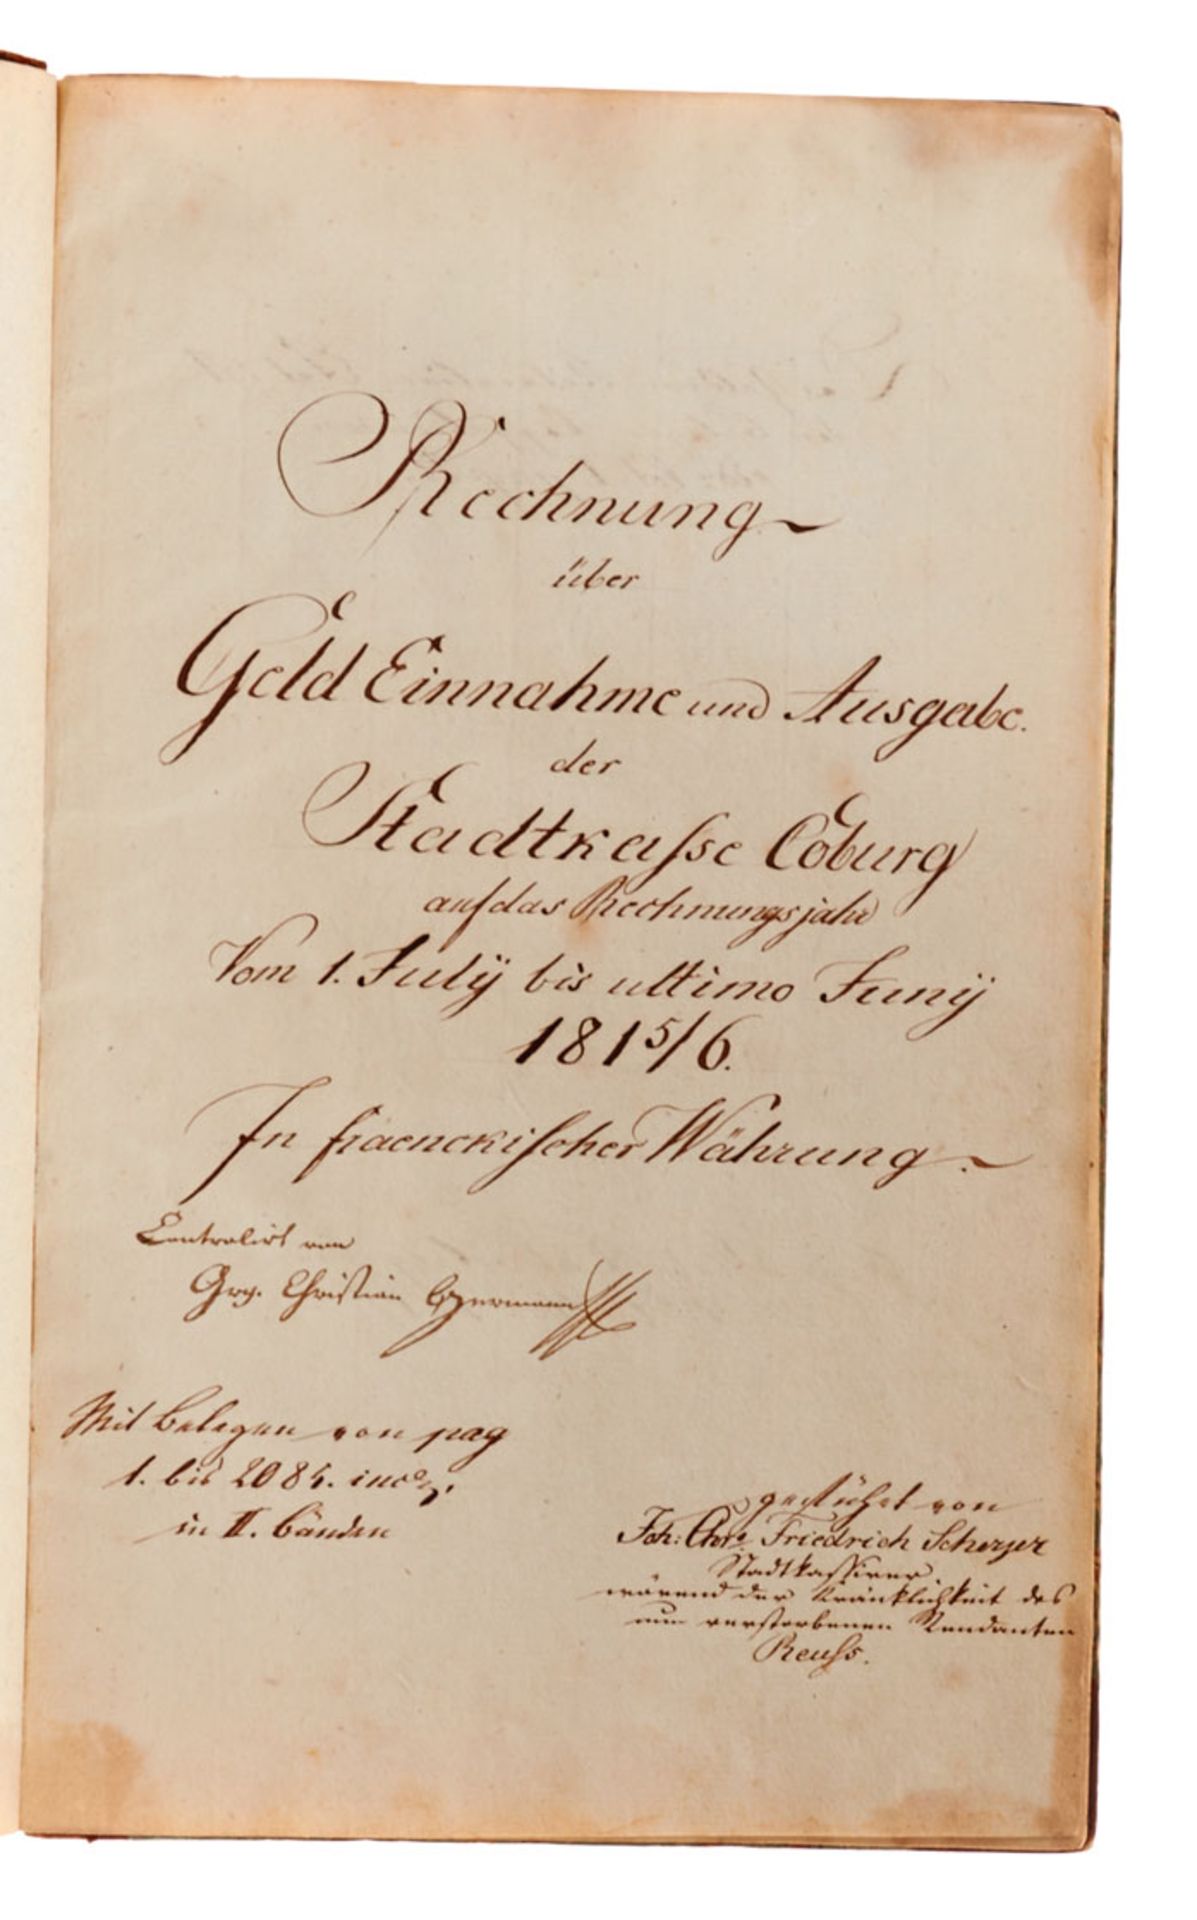 Rechnung
über
Geld Einnahme und Ausgabe.
der
Stadtkaſse Coburg
auf das Rechnungsjahr
Vom 1. Julÿ bis ultimo Junÿ
1815/6.
In fraenckiſcher Währung.
Controlirt von
Grg. Christian
Mit Belegen von pag
1. bis 2084. incl.
in II. Bänden
geführt von
Joh: Chr: Friedrich
Stadtkaſsirer
wärend der Kränklichkeit des
nun verstorbenen Rendanten
Reuſs.